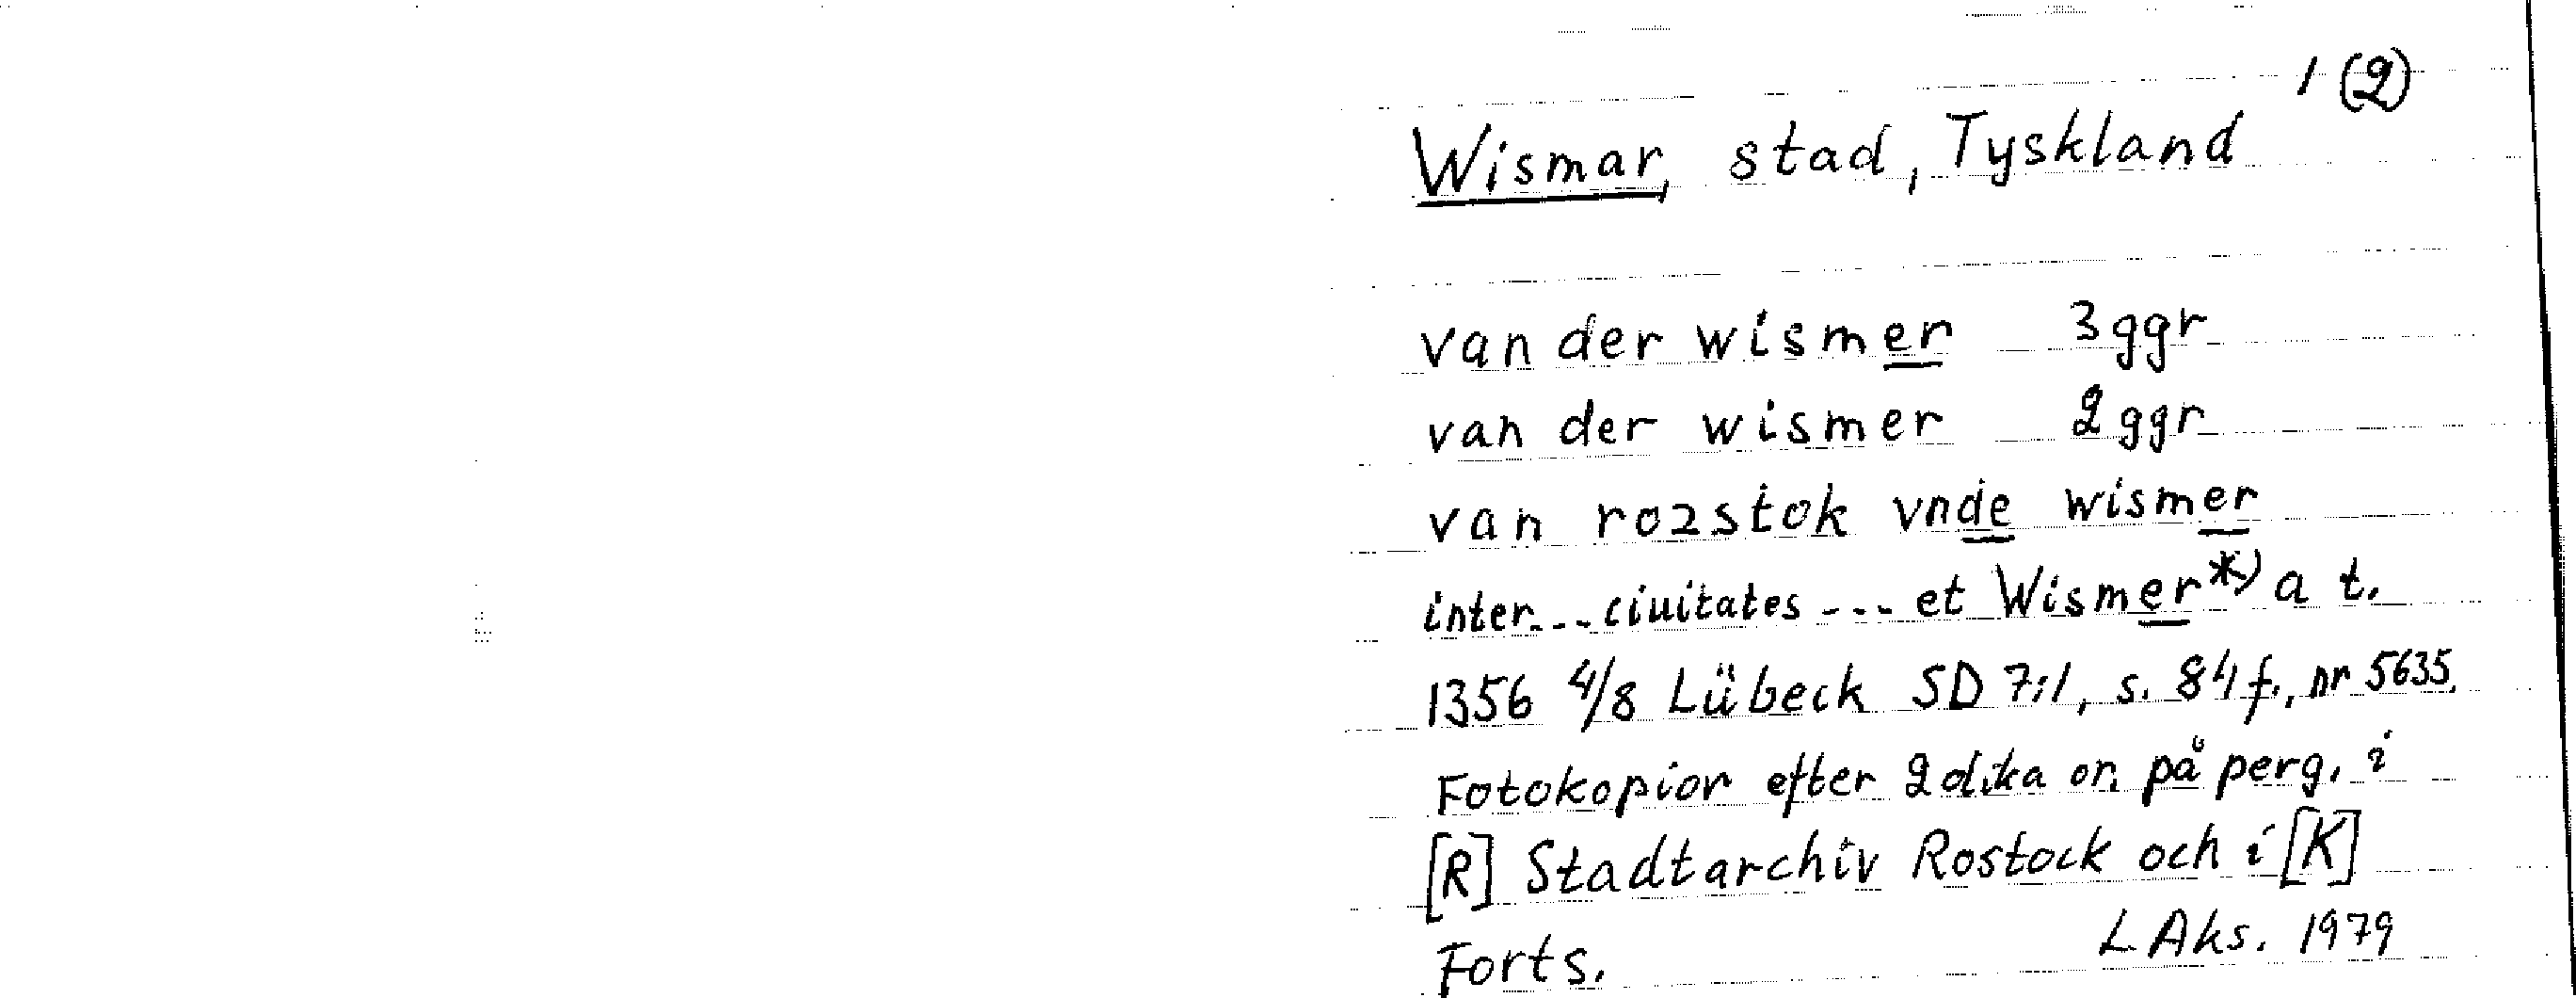 1 (2)
Wismar, stad, Tyskland
van der wismer 3 ggr
van der wismer 2 ggr
van rozstok vnde wismer
inter --- ciuitates --- et Wismer*) a t.
1356 4/8 Lübeck SD 7:1, s. 84 f., nr 5635.
Fotokopior efter 2 olika or. på perg. i
[R] Stadtarchiv Rostock och i [K]
Forts. LAks. 1979